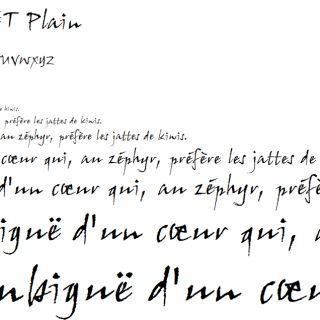 T Plain
uvwxyz
kiwis.
préfère les jattes de kiwis.
au zéphyr, préfère les jattes de kiwis.
cœur qui, au zéphyr, préfère les jattes de
d'un cœur qui, au zéphyr, préfè
iguë d'un cœur qui, a
mbiguë d'un cœu